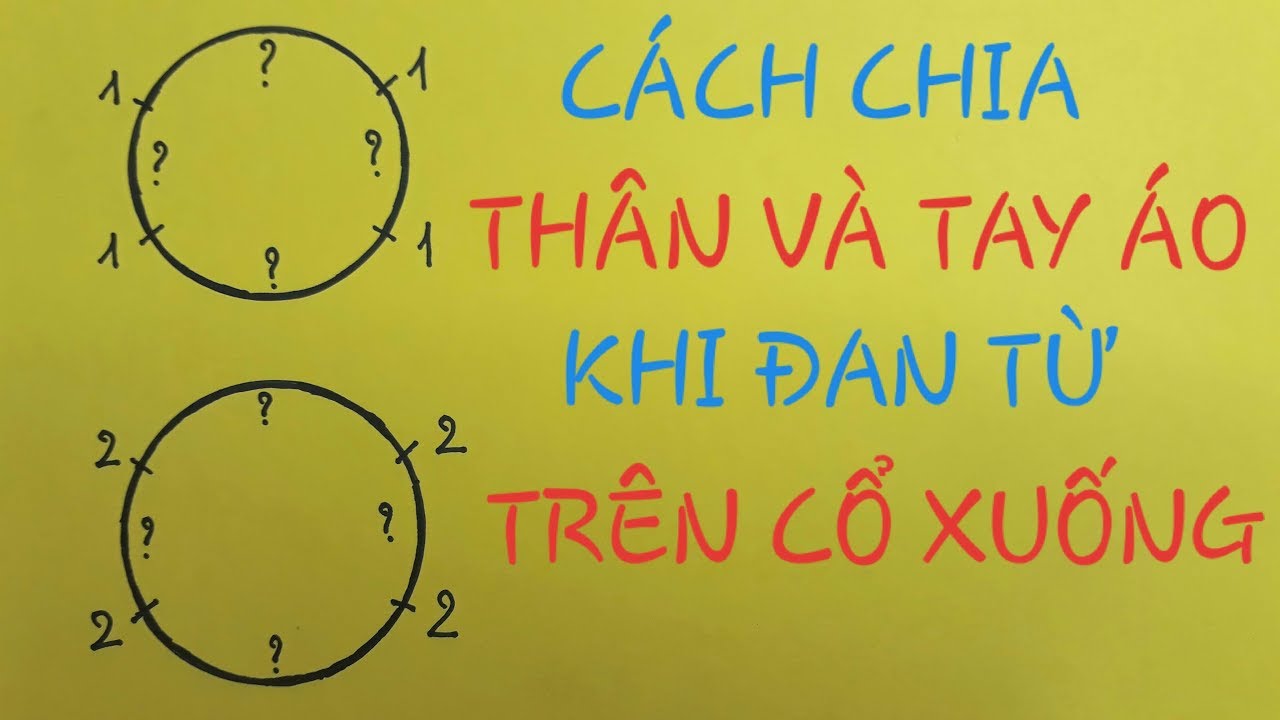 ?
1 1
? ?
1 1
?
?
2 2
? ?
2 2
?
CÁCH CHIA
THÂN VÀ TAY ÁO
KHI ĐAN TỪ
TRÊN CỔ XUỐNG